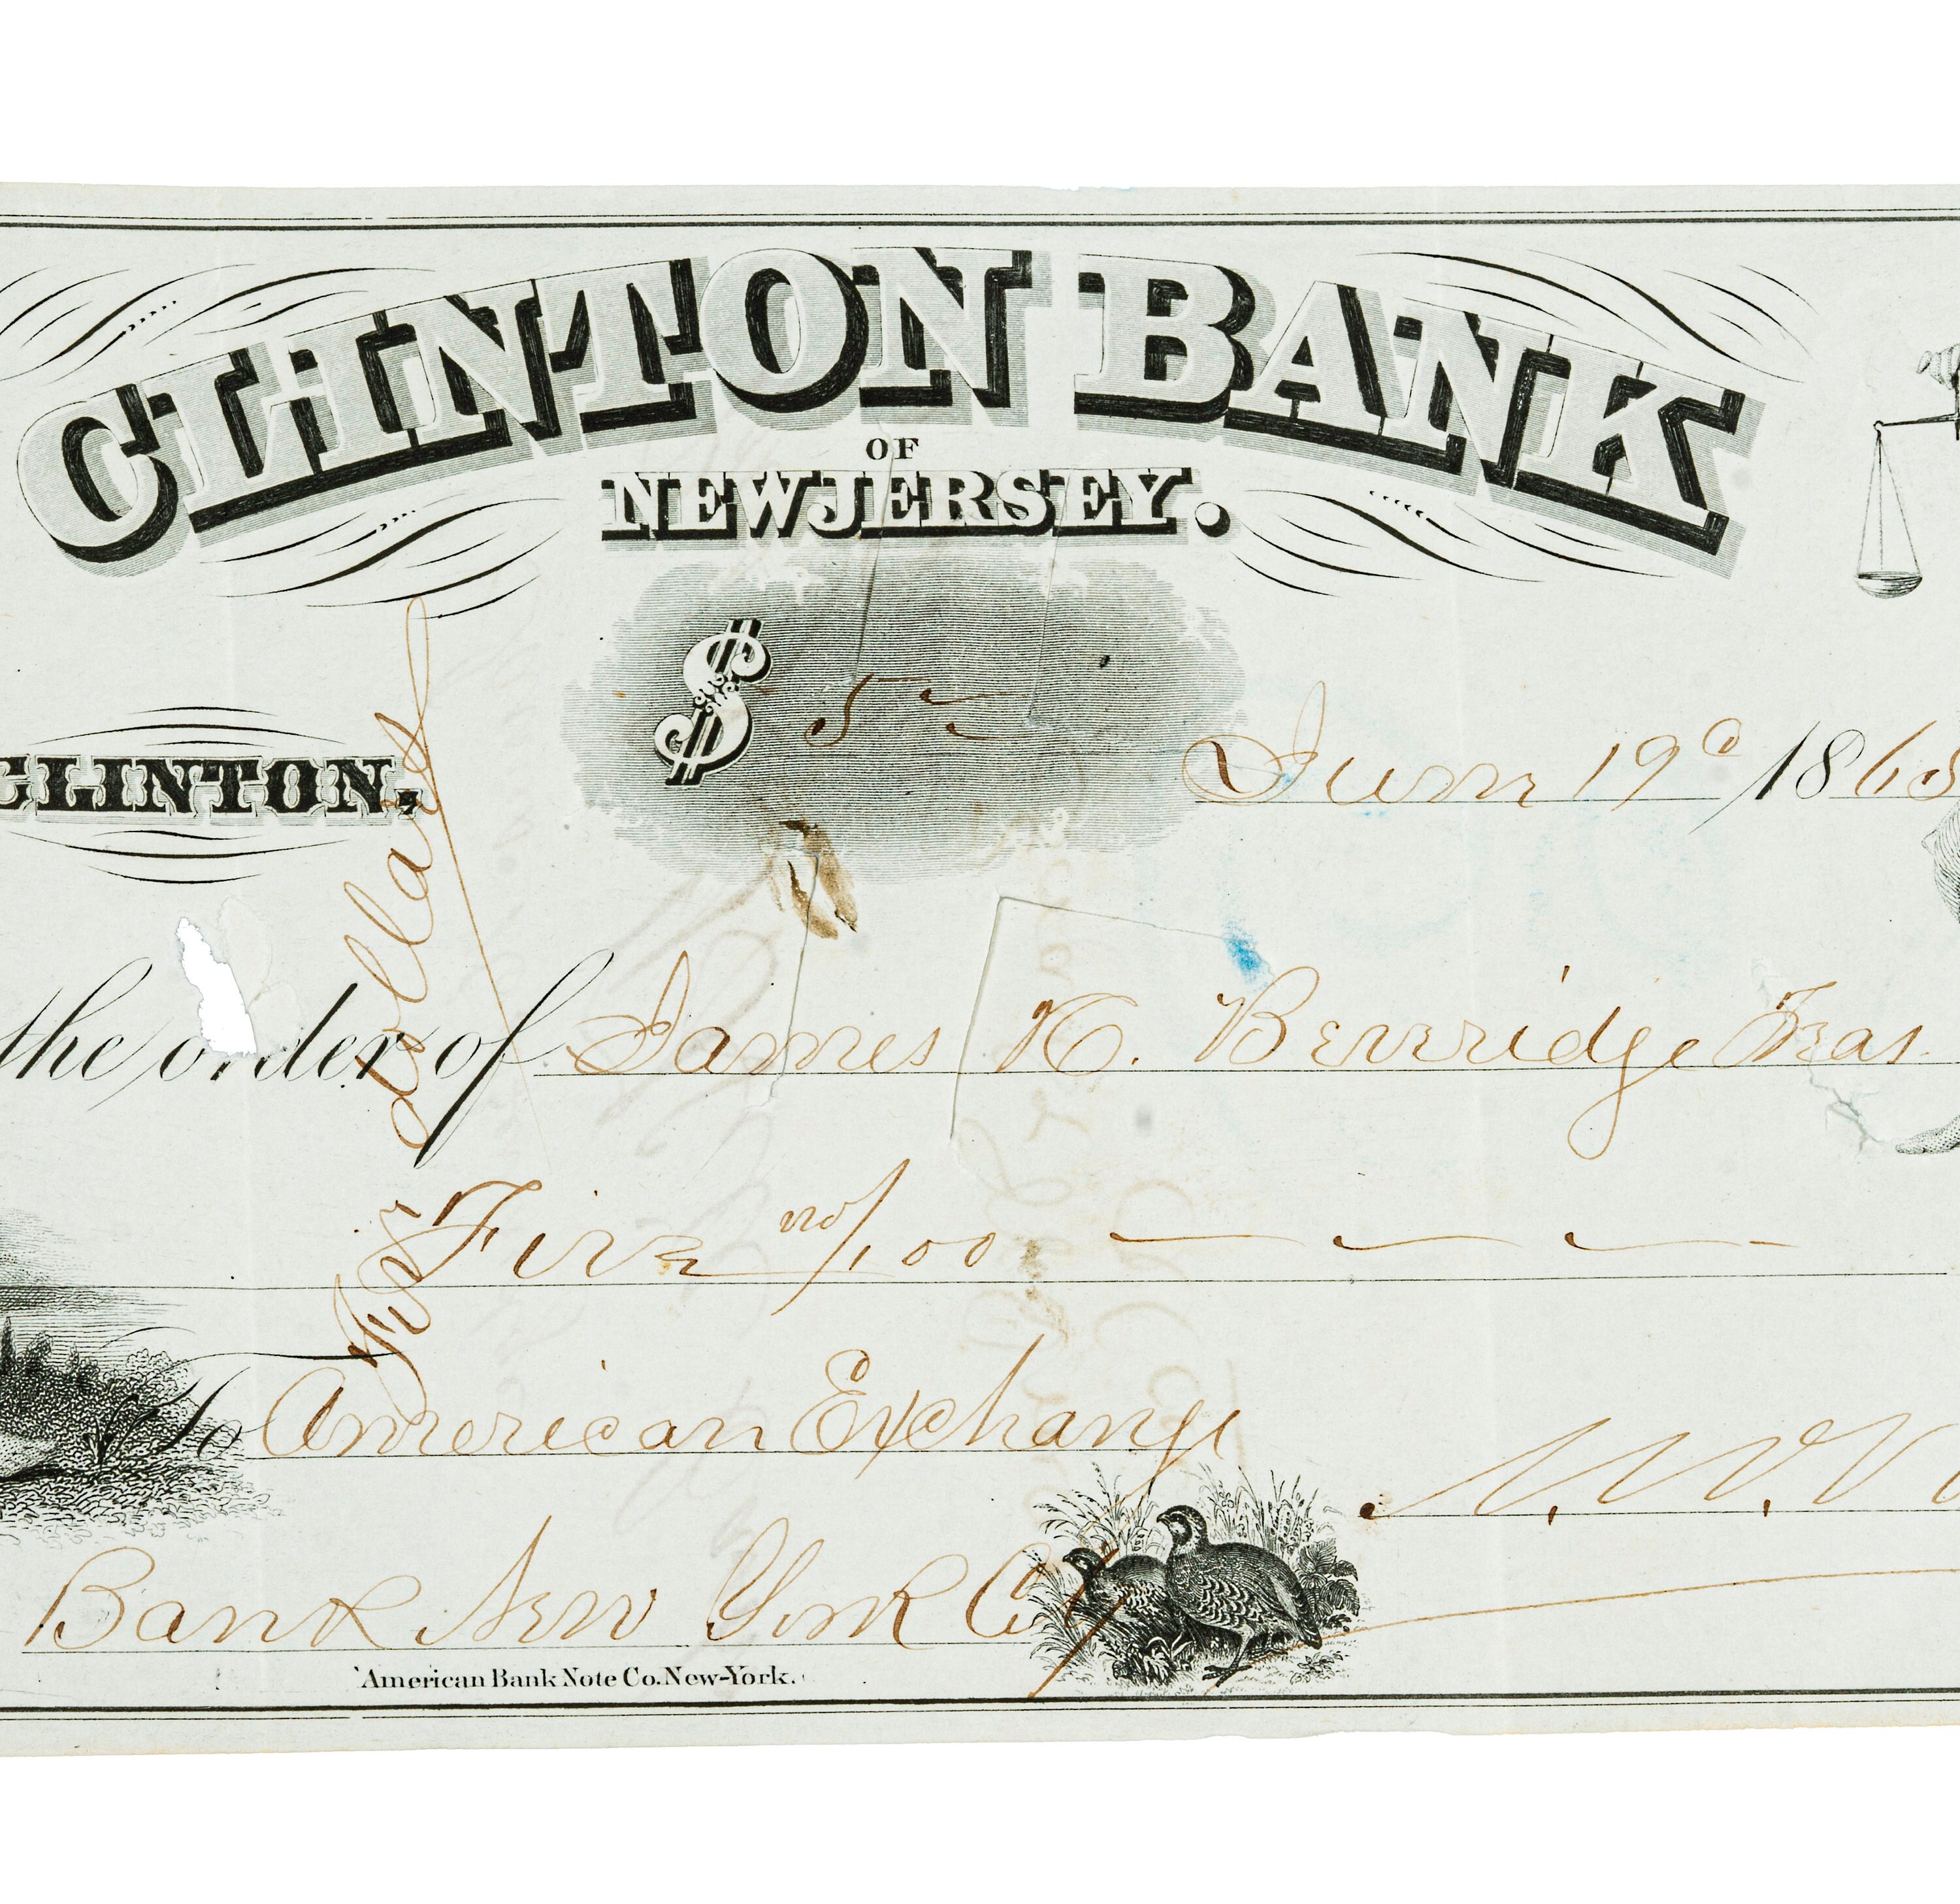 CLINTON BANK
OF
NEW JERSEY.
$ 5
CLINTON, June 19 1865
the order of James H. Beverridge Treas.
Five no/100
For Dollars
To American Exchange
Bank New York City
American Bank Note Co. New-York.